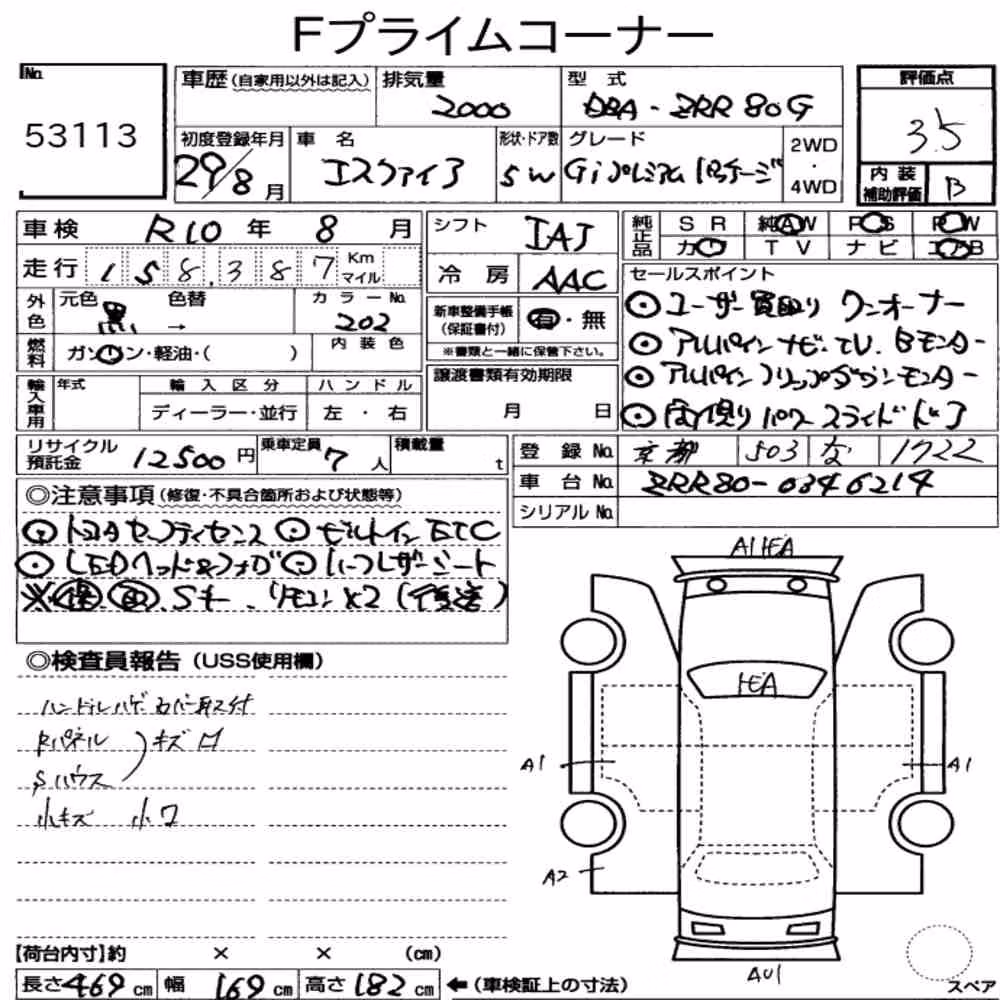 Fプライムコーナー
No.
53113
車歴(自家用以外は記入)
排気量
2000
型 式
DBA - ZRR 80G
評価点
3.5
初度登録年月
29/8月
車 名
エスクァイア
形状・ドア数
5W
グレード
Gi プレミアムパッケージ
2WD
・
4WD
内 装
補助評価
B
車検 R10 年 8 月
走行 158,387 Km マイル
シフト IAT
冷 房 AAC
純正品 S R 純 A W P S P W
カワ T V ナ ビ エアB
外色 元色 黒 色替 →
カラーNo.
202
燃料 ガソリン・軽油・( )
内 装 色
新車整備手帳
(保証書付)
有・無
※書類と一緒に保管下さい。
セールスポイント
⊙ユーザー買取り ワンオーナー
⊙アルパインナビ.TV. Bモニター
⊙アルパインフリップダウンモニター
⊙両側りパワースライドドア
輸入車用 年式 輸 入 区 分 ハ ン ド ル
ディーラー・並行 左 ・ 右
譲渡書類有効期限
月 日
リサイクル
預託金
12500円
乗車定員
7人
積載量
t
登 録 No. 京都 503 な 1722
車 台 No. ZRR80-0346214
シリアルNo.
◎注意事項(修復・不具合箇所および状態等)
⊙トヨタセーフティセンス ⊙ビルトインETC
⊙LEDヘッド&フォグ ⊙ハーフレザーシート
※保 取 Sキー リモコン×2(後送)
◎検査員報告(USS使用欄)
ハンドルハゲ カバー取付
Rパネル
キズ
Sハウス
小キズ
A1 HEA
HEA
A1
A1
A2
AU1
スペア
【荷台内寸】約 × × (cm)
長さ469cm 幅 169cm 高さ182cm ←(車検証上の寸法)